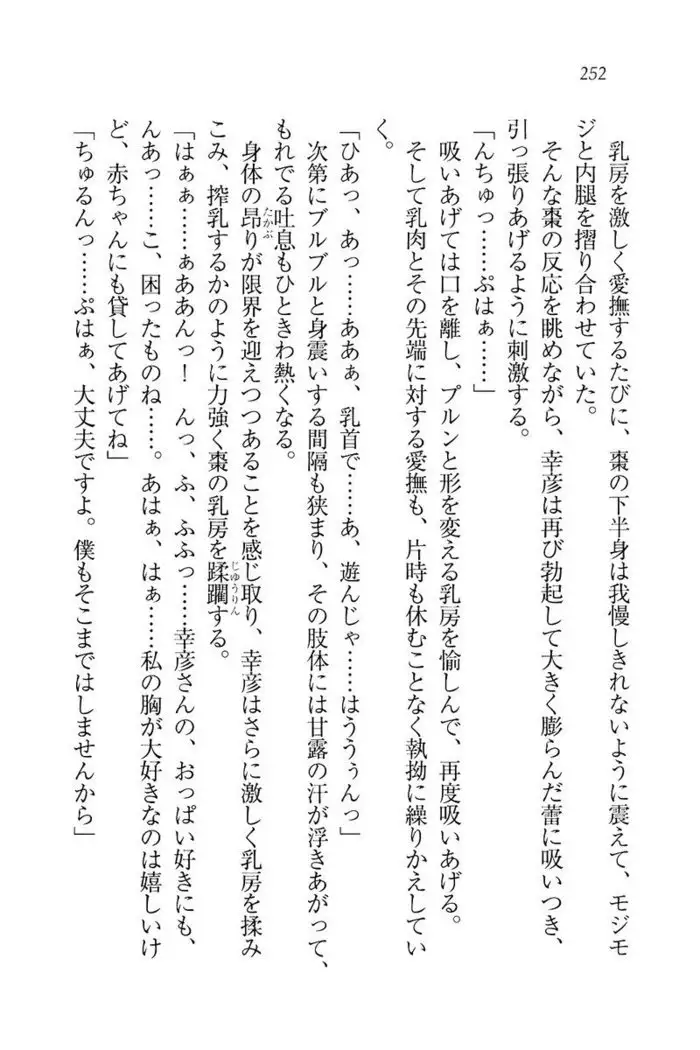 252
乳房を激しく愛撫するたびに、棗の下半身は我慢しきれないように震えて、モジモ
ジと内腿を摺り合わせていた。
そんな棗の反応を眺めながら、幸彦は再び勃起して大きく膨らんだ蕾に吸いつき、
引っ張りあげるように刺激する。
「んちゅっ……ぷはぁ……」
吸いあげては口を離し、プルンと形を変える乳房を愉しんで、再度吸いあげる。
そして乳肉とその先端に対する愛撫も、片時も休むことなく執拗に繰りかえしてい
く。
「ひあっ、あっ……ああぁ、乳首で……あ、遊んじゃ……はううぅんっ」
次第にブルブルと身震いする間隔も狭まり、その肢体には甘露の汗が浮きあがって、
もれでる吐息もひときわ熱くなる。
身体の昂りが限界を迎えつつあることを感じ取り、幸彦はさらに激しく乳房を揉み
たかぶ
こみ、搾乳するかのように力強く棗の乳房を蹂躙する。
じゅうりん
「はぁぁ……ぁああんっ！　んっ、ふ、ふふっ……幸彦さんの、おっぱい好きにも、
んあっ……こ、困ったものね……。あはぁ、はぁ……私の胸が大好きなのは嬉しいけ
ど、赤ちゃんにも貸してあげてね」
「ちゅるんっ……ぷはぁ、大丈夫ですよ。僕もそこまではしませんから」